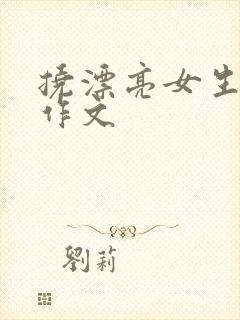 挠漂亮女生
作文
劉莉